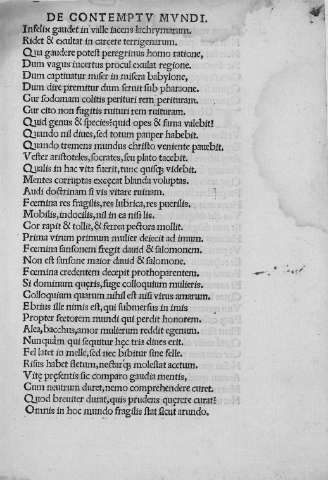 DE CONTEMPTV MVNDI.
Infelix gaudet in valle iacens lachrymarum.
Ridet & exultat in carcere terrigenarum.
Qua gaudere potest peregrinus homo ratione,
Dum vagus incertus procul exulat regione.
Dum captiuatur miser in misera babylone,
Dum dire premitur dum seruit sub pharaone.
Cur sodomam colitis perituri rem perituram.
Cur cito non fugitis ruituri rem ruituram.
Quid genus & species quid opes & fama valebit?
Quando nil diues, sed totum pauper habebit.
Quando tremens mundus christo veniente pauebit.
Vester aristoteles, socrates, seu plato tacebit.
Qualis in hac vita fuerit, tunc quisq; videbit.
Mentes corruptas excęcat blanda voluptas.
Audi doctrinam si vis vitare ruinam.
Foemina res fragilis, res lubrica, res puerilis.
Mobilis, indocilis, nil in ea nisi lis.
Cor rapit & tollit, & ferrea pectora mollit.
Prima virum primum mulier deiecit ad imum.
Foemina sansonem fregit dauid & salomonem.
Non est sansone maior dauid & salomone.
Foemina credentem decepit prothoparentem.
Si dominum quęris, fuge colloquium mulieris.
Colloquium quarum nihil est nisi virus amarum.
Ebrius ille nimis est, qui submersus in imis
Propter foetorem mundi qui perdit honorem.
Alea, bacchus, amor mulierum reddit egenum.
Nunquam qui sequitur hęc tria diues erit.
Fel latet in melle, sed nec bibitur sine felle.
Risus habet fletum, nectarq; molestat acetum.
Vitę pręsentis sic comparo gaudia mentis,
Cum neutrum duret, nemo comprehendere curet.
Quod breuiter durat, quis prudens quęrere curat?
Omnis in hoc mundo fragilis stat sicut arundo.